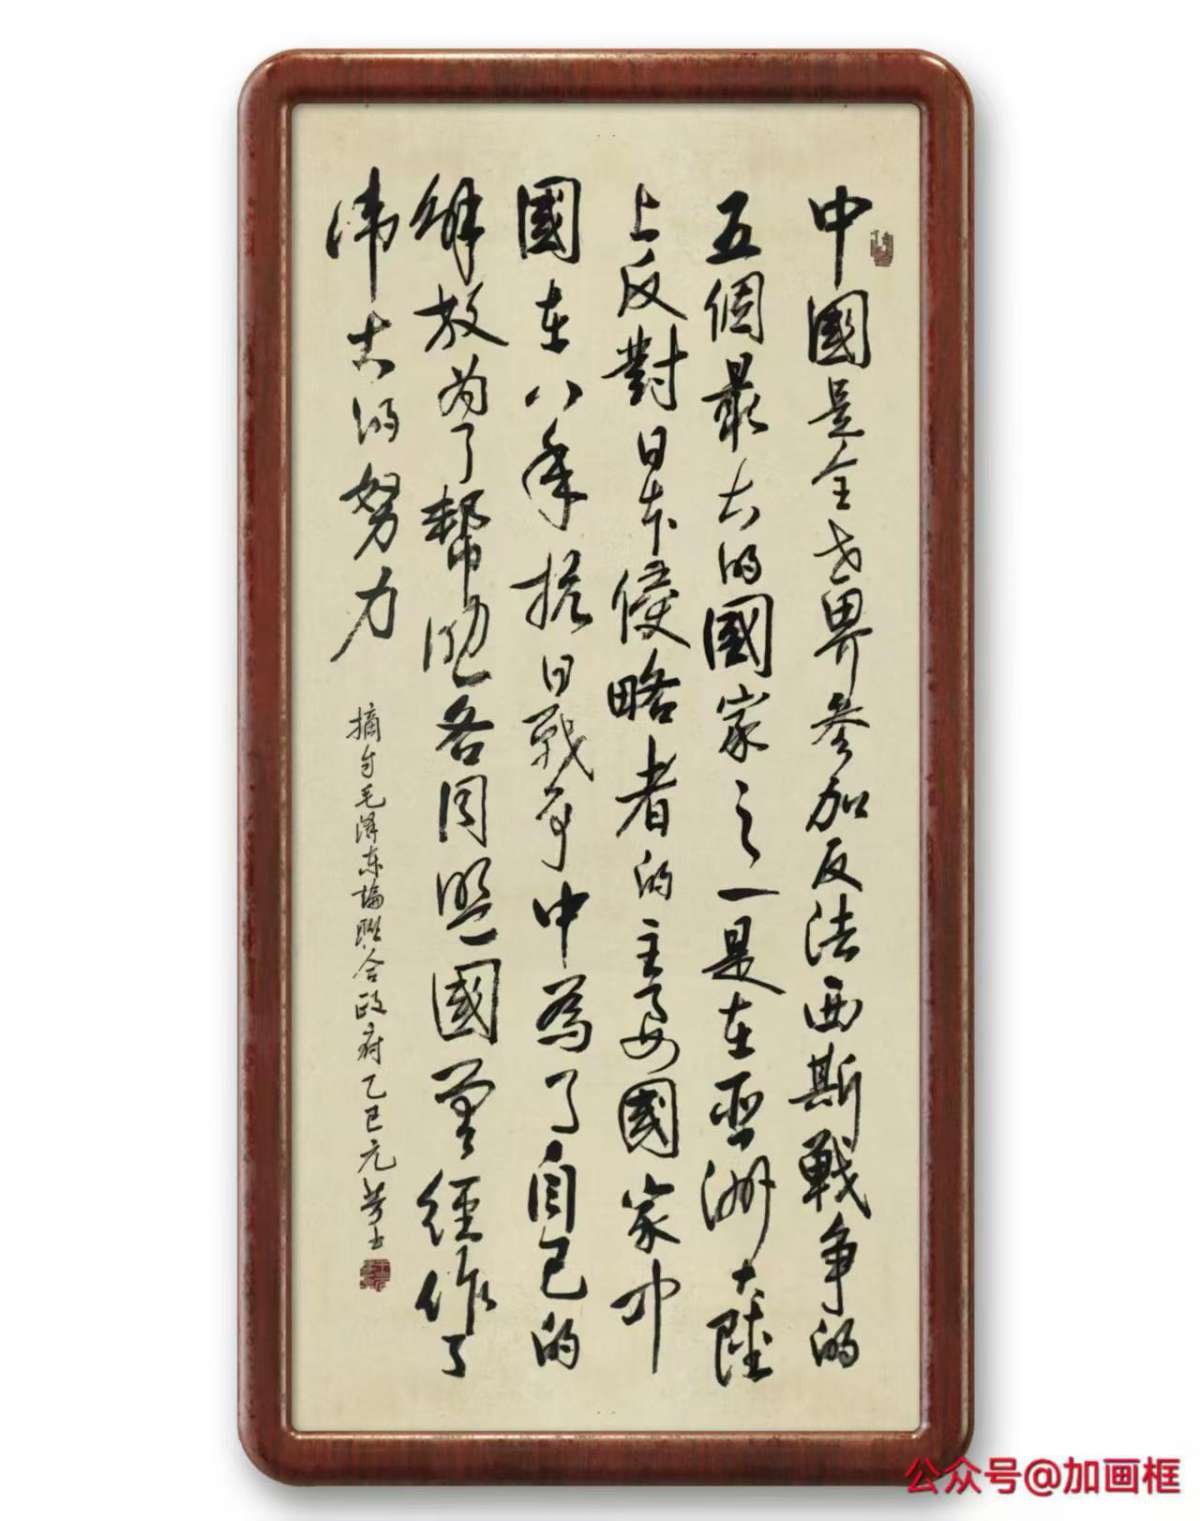 中國是全世界參加反法西斯戰争的
五個最大的國家之一是在亞洲大陸
上反對日本侵略者的主要國家中
國在八年抗日戰争中為了自己的
解放为了幫助各同盟國曾經作了
偉大的努力
摘自毛澤東論聯合政府乙巳元芳书
公众号@加画框